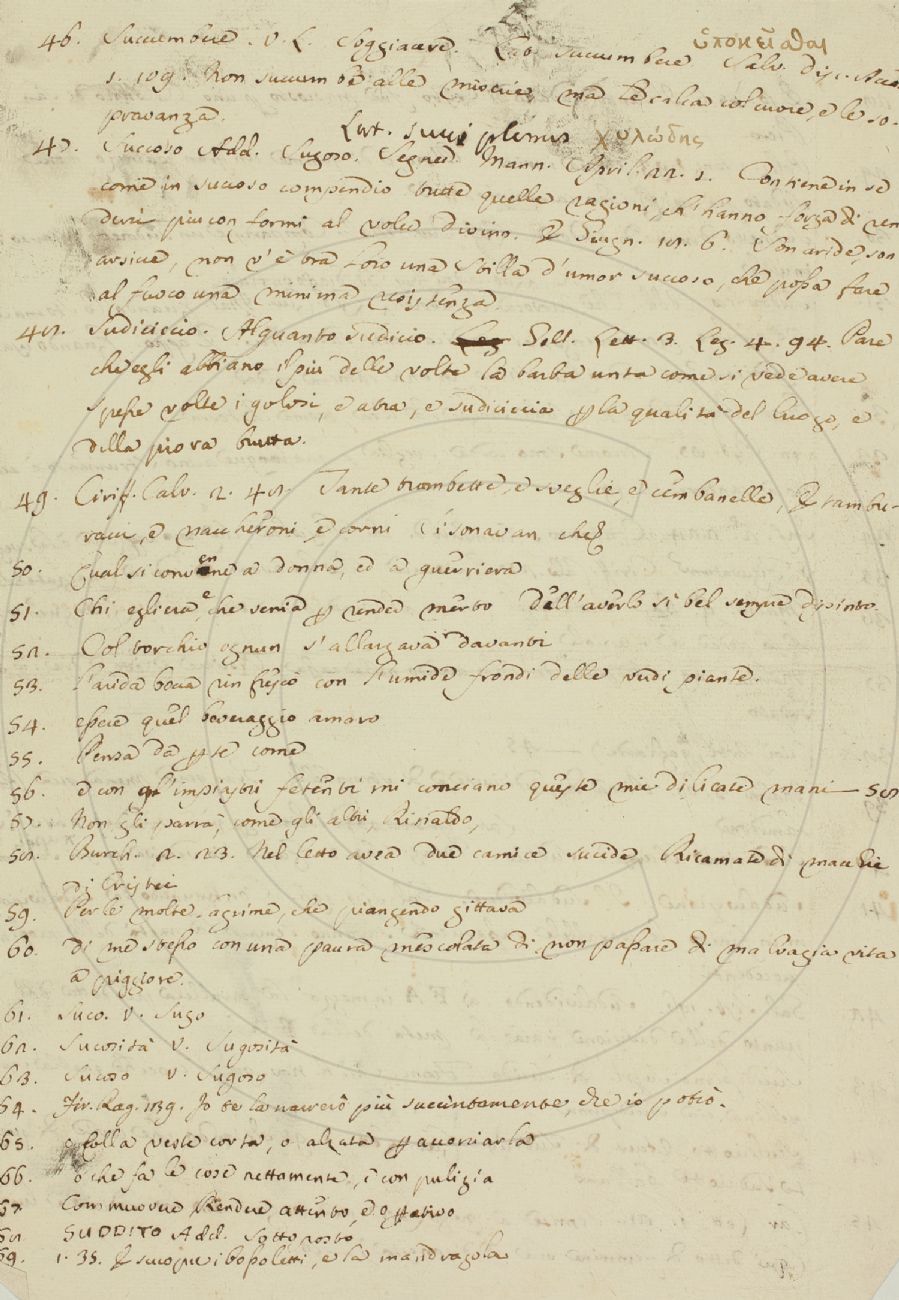 46. Succumbere. V. L. Soggiacere. Lat. succumbere ὑποκεῖσθαι Salv. Disc. Acc.
1. 109. Non succumbe alle miserie, ma le calca col cuore, e le so-
pravanza.
Lat. succi plenus χυλώδης
47. Succoso Add. Sugoso. Segner. Mann. April. 22. 1. Contiene in se
come in succoso compendio tutte quelle ragioni, ch' hanno forza di ren
derci più conformi al voler divino. E Giugn. 18. 6. Son aride, son
arsicce, non v'è tra loro una stilla d'umor succoso, che possa fare
al fuoco una minima resistenza.
48. Sudiciccio. Alquanto sudicio. Leg Sold. Lett. 3. Leg. 4. 94. Pare
che egli abbiano il più delle volte la barba unta come si vede avere
spesse volte i golosi, e atra, e sudiciccia p la qualità del luogo, e
della piova brutta.
49. Ciriff. Calv. 2. 48. Tante trombette, e sveglie, e cembanelle, E tambu-
racci, e naccheroni, e corni Vi sonavan che
50. Qual si conviene a donna, ed a guerriera
51. Chi egli era e che venia p render merto Dell'averlo sì bel sempre dipinto
52. Col torchio ognun s'allargava davanti
53. L'arida bocca rinfresco con L'umide frondi delle verdi piante.
54. esser quel beveraggio amaro
55. Pensa da p te come
56. e con gl'impiastri fetenti mi conciano queste mie dilicate mani — 58
57. Non gli parrà, come gli altri, Rinaldo,
58. Burch. 2. 23. Nel letto avea due camice sucide Ricamate di macchie
di cristei
59. Per le molte lagrime, che piangendo gittava
60. Di me stesso con una paura mescolata di non passare di malvagia vita
a piggiore.
61. Suco. V. Sugo
62. Sucosità V. Sugosità
63. Sucoso V. Sugoso
64. Fir. Rag. 139. Io te la narrerò più succintamente, che io potrò.
65. o colla veste corta, o alzata p accorciarla
66. o che fa le cose nettamente, e con pulizia
67. Commuovere Rendere attento, e
68 SUDDITO Add. Sottoposto
69. 1. 35. E suoperi bossoletti, e la mandragola